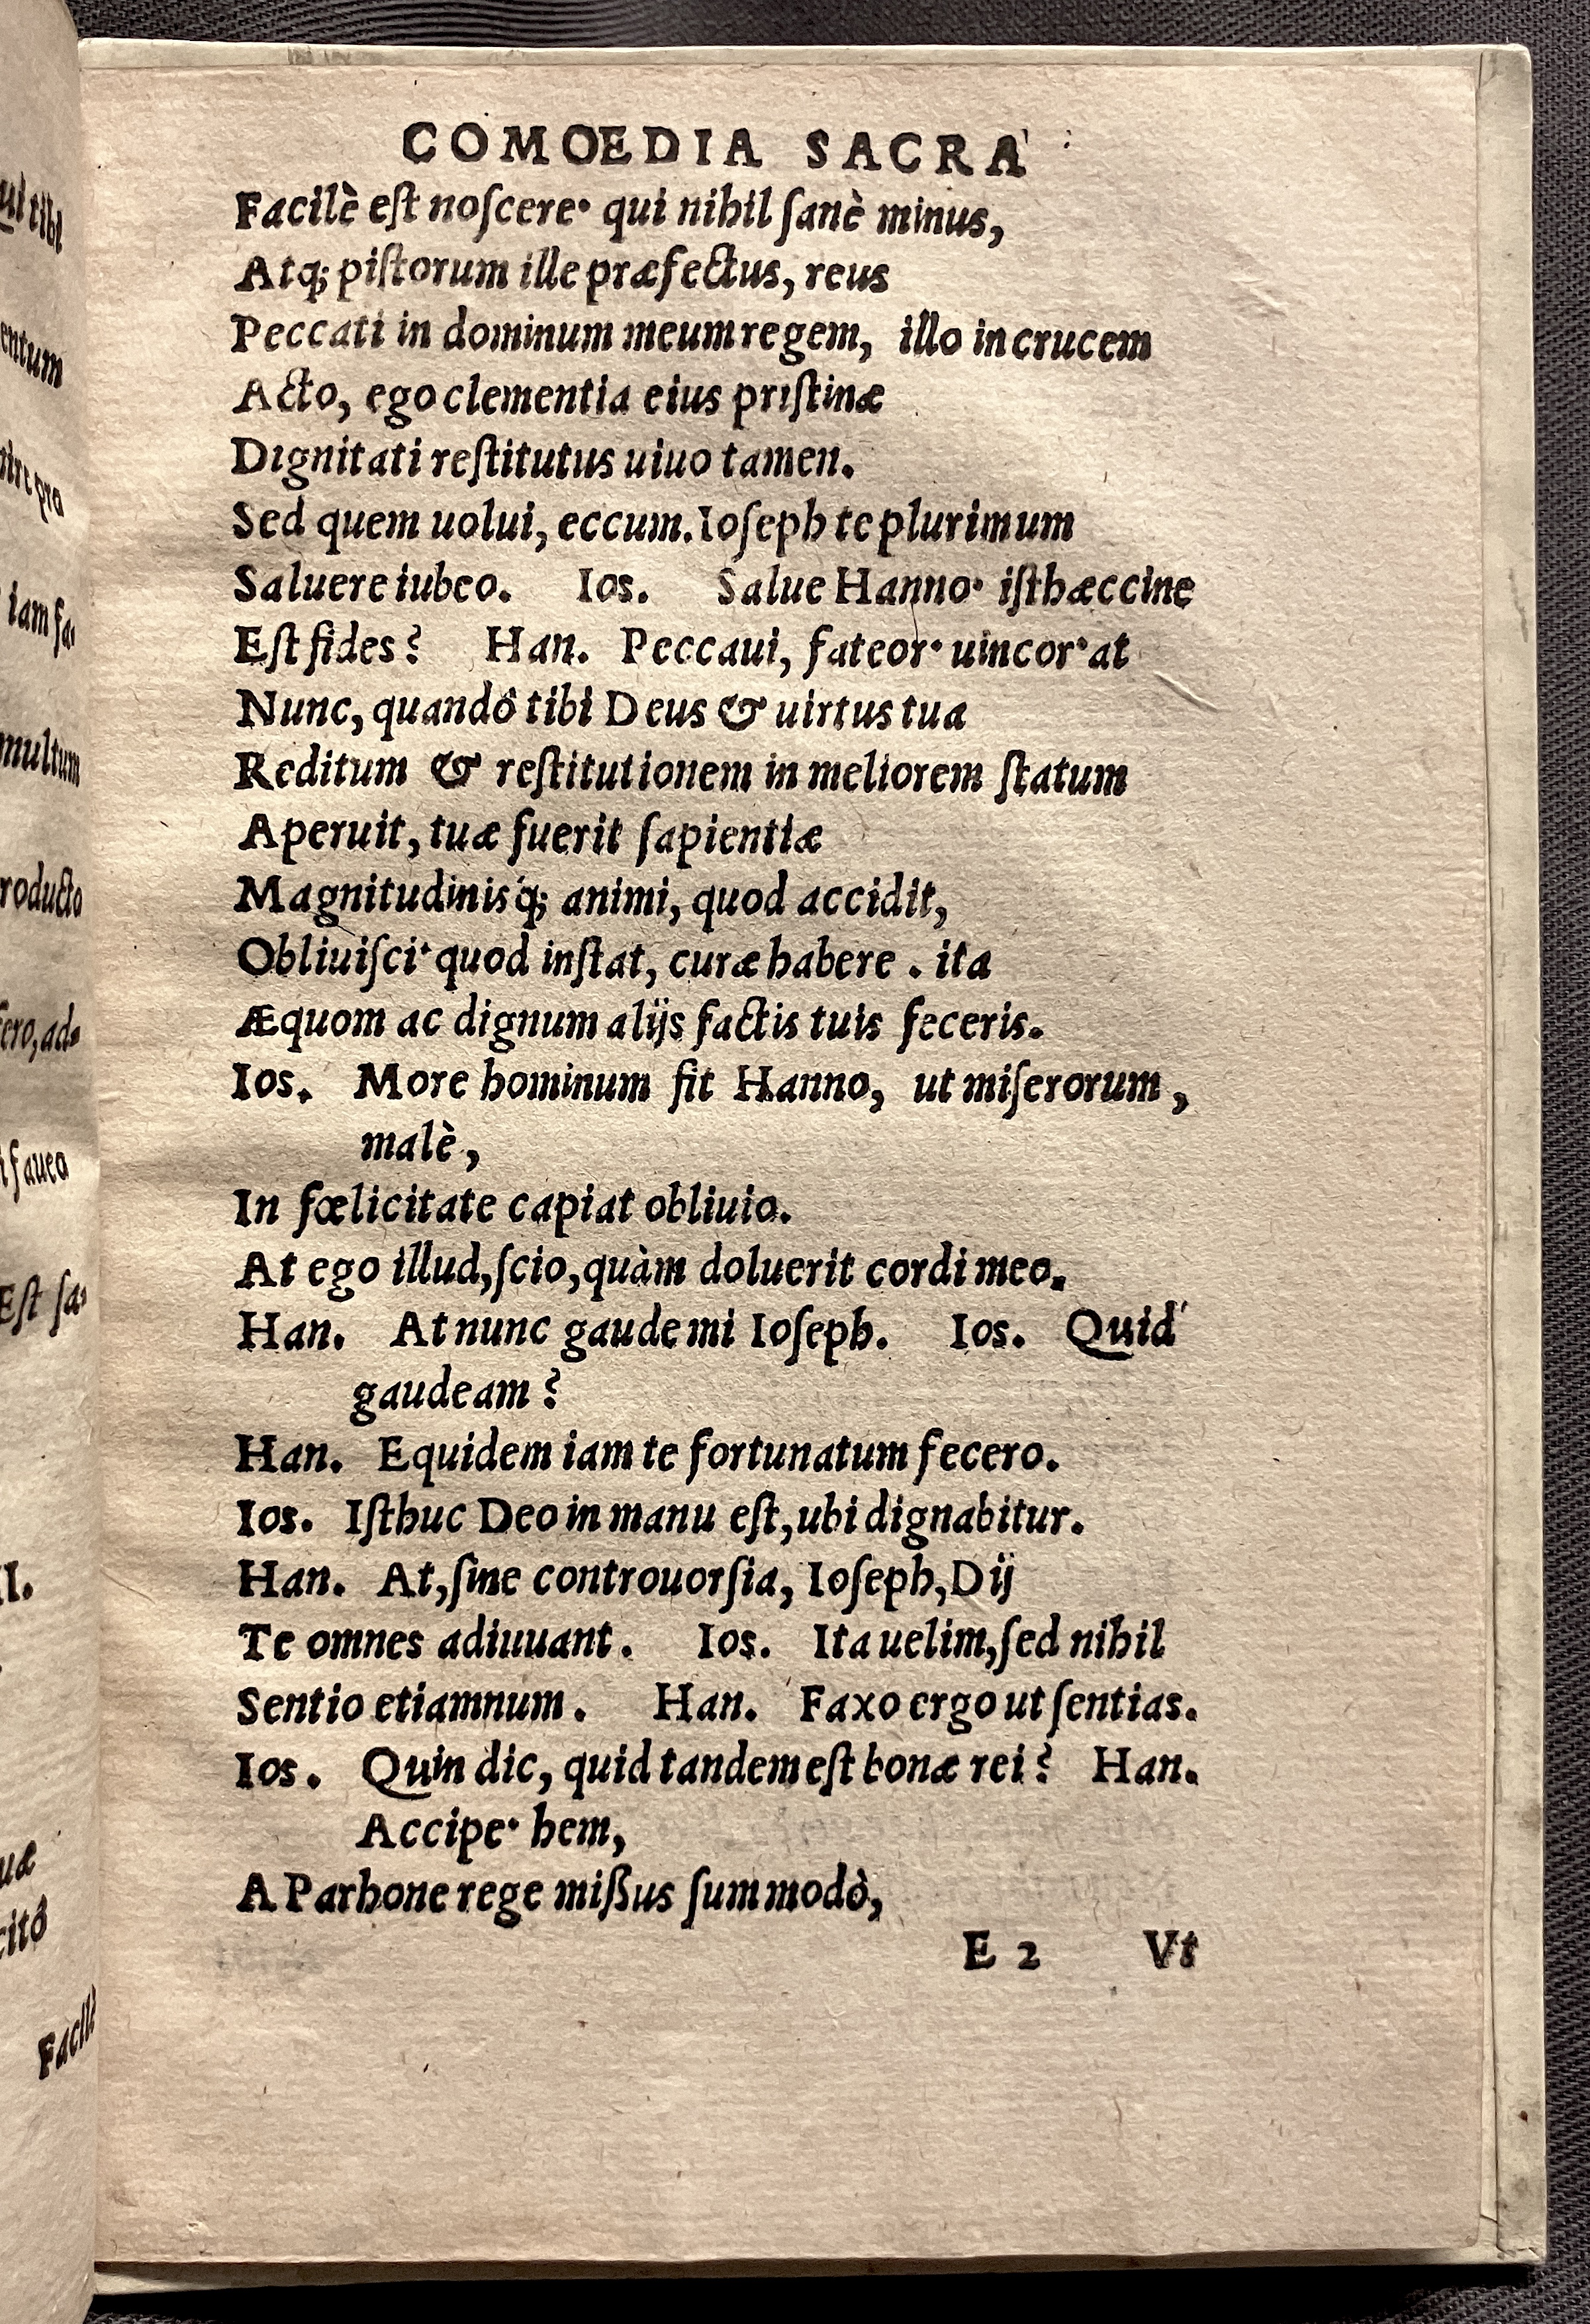 COMOEDIA SACRA
Facilè eſt noſcere· qui nihil ſanè minus,
Atq; piſtorum ille præfectus, reus
Peccati in dominum meum regem, illo in crucem
Acto, ego clementia eius priſtinæ
Dignitati reſtitutus uiuo tamen.
Sed quem uolui, eccum. Ioſeph te plurimum
Saluere iubeo. Ios. Salue Hanno· iſthæccine
Eſt fides? Han. Peccaui, fateor· uincor· at
Nunc, quandô tibi Deus & uirtus tua
Reditum & reſtitutionem in meliorem ſtatum
Aperuit, tuæ fuerit ſapientiæ
Magnitudinisq́; animi, quod accidit,
Obliuiſci· quod inſtat, curæ habere. ita
Æquom ac dignum alijs factis tuis feceris.
Ios. More hominum fit Hanno, ut miſerorum,
malè,
In fœlicitate capiat obliuio.
At ego illud, ſcio, quàm doluerit cordi meo.
Han. At nunc gaude mi Ioſeph. Ios. Quid
gaudeam?
Han. Equidem iam te fortunatum fecero.
Ios. Iſthuc Deo in manu eſt, ubi dignabitur.
Han. At, ſine controuorſia, Ioſeph, Dij
Te omnes adiuuant. Ios. Ita uelim, ſed nihil
Sentio etiamnum. Han. Faxo ergo ut ſentias.
Ios. Quin dic, quid tandem eſt bonæ rei? Han.
Accipe· hem,
A Parhone rege mißus ſum modò,
E 2 Vt
ul tibi
entum
pro
iam fa-
multum
roducto
ero, ad-
faueo
Eſt ſa-
II.
uæ
citô
Facilè